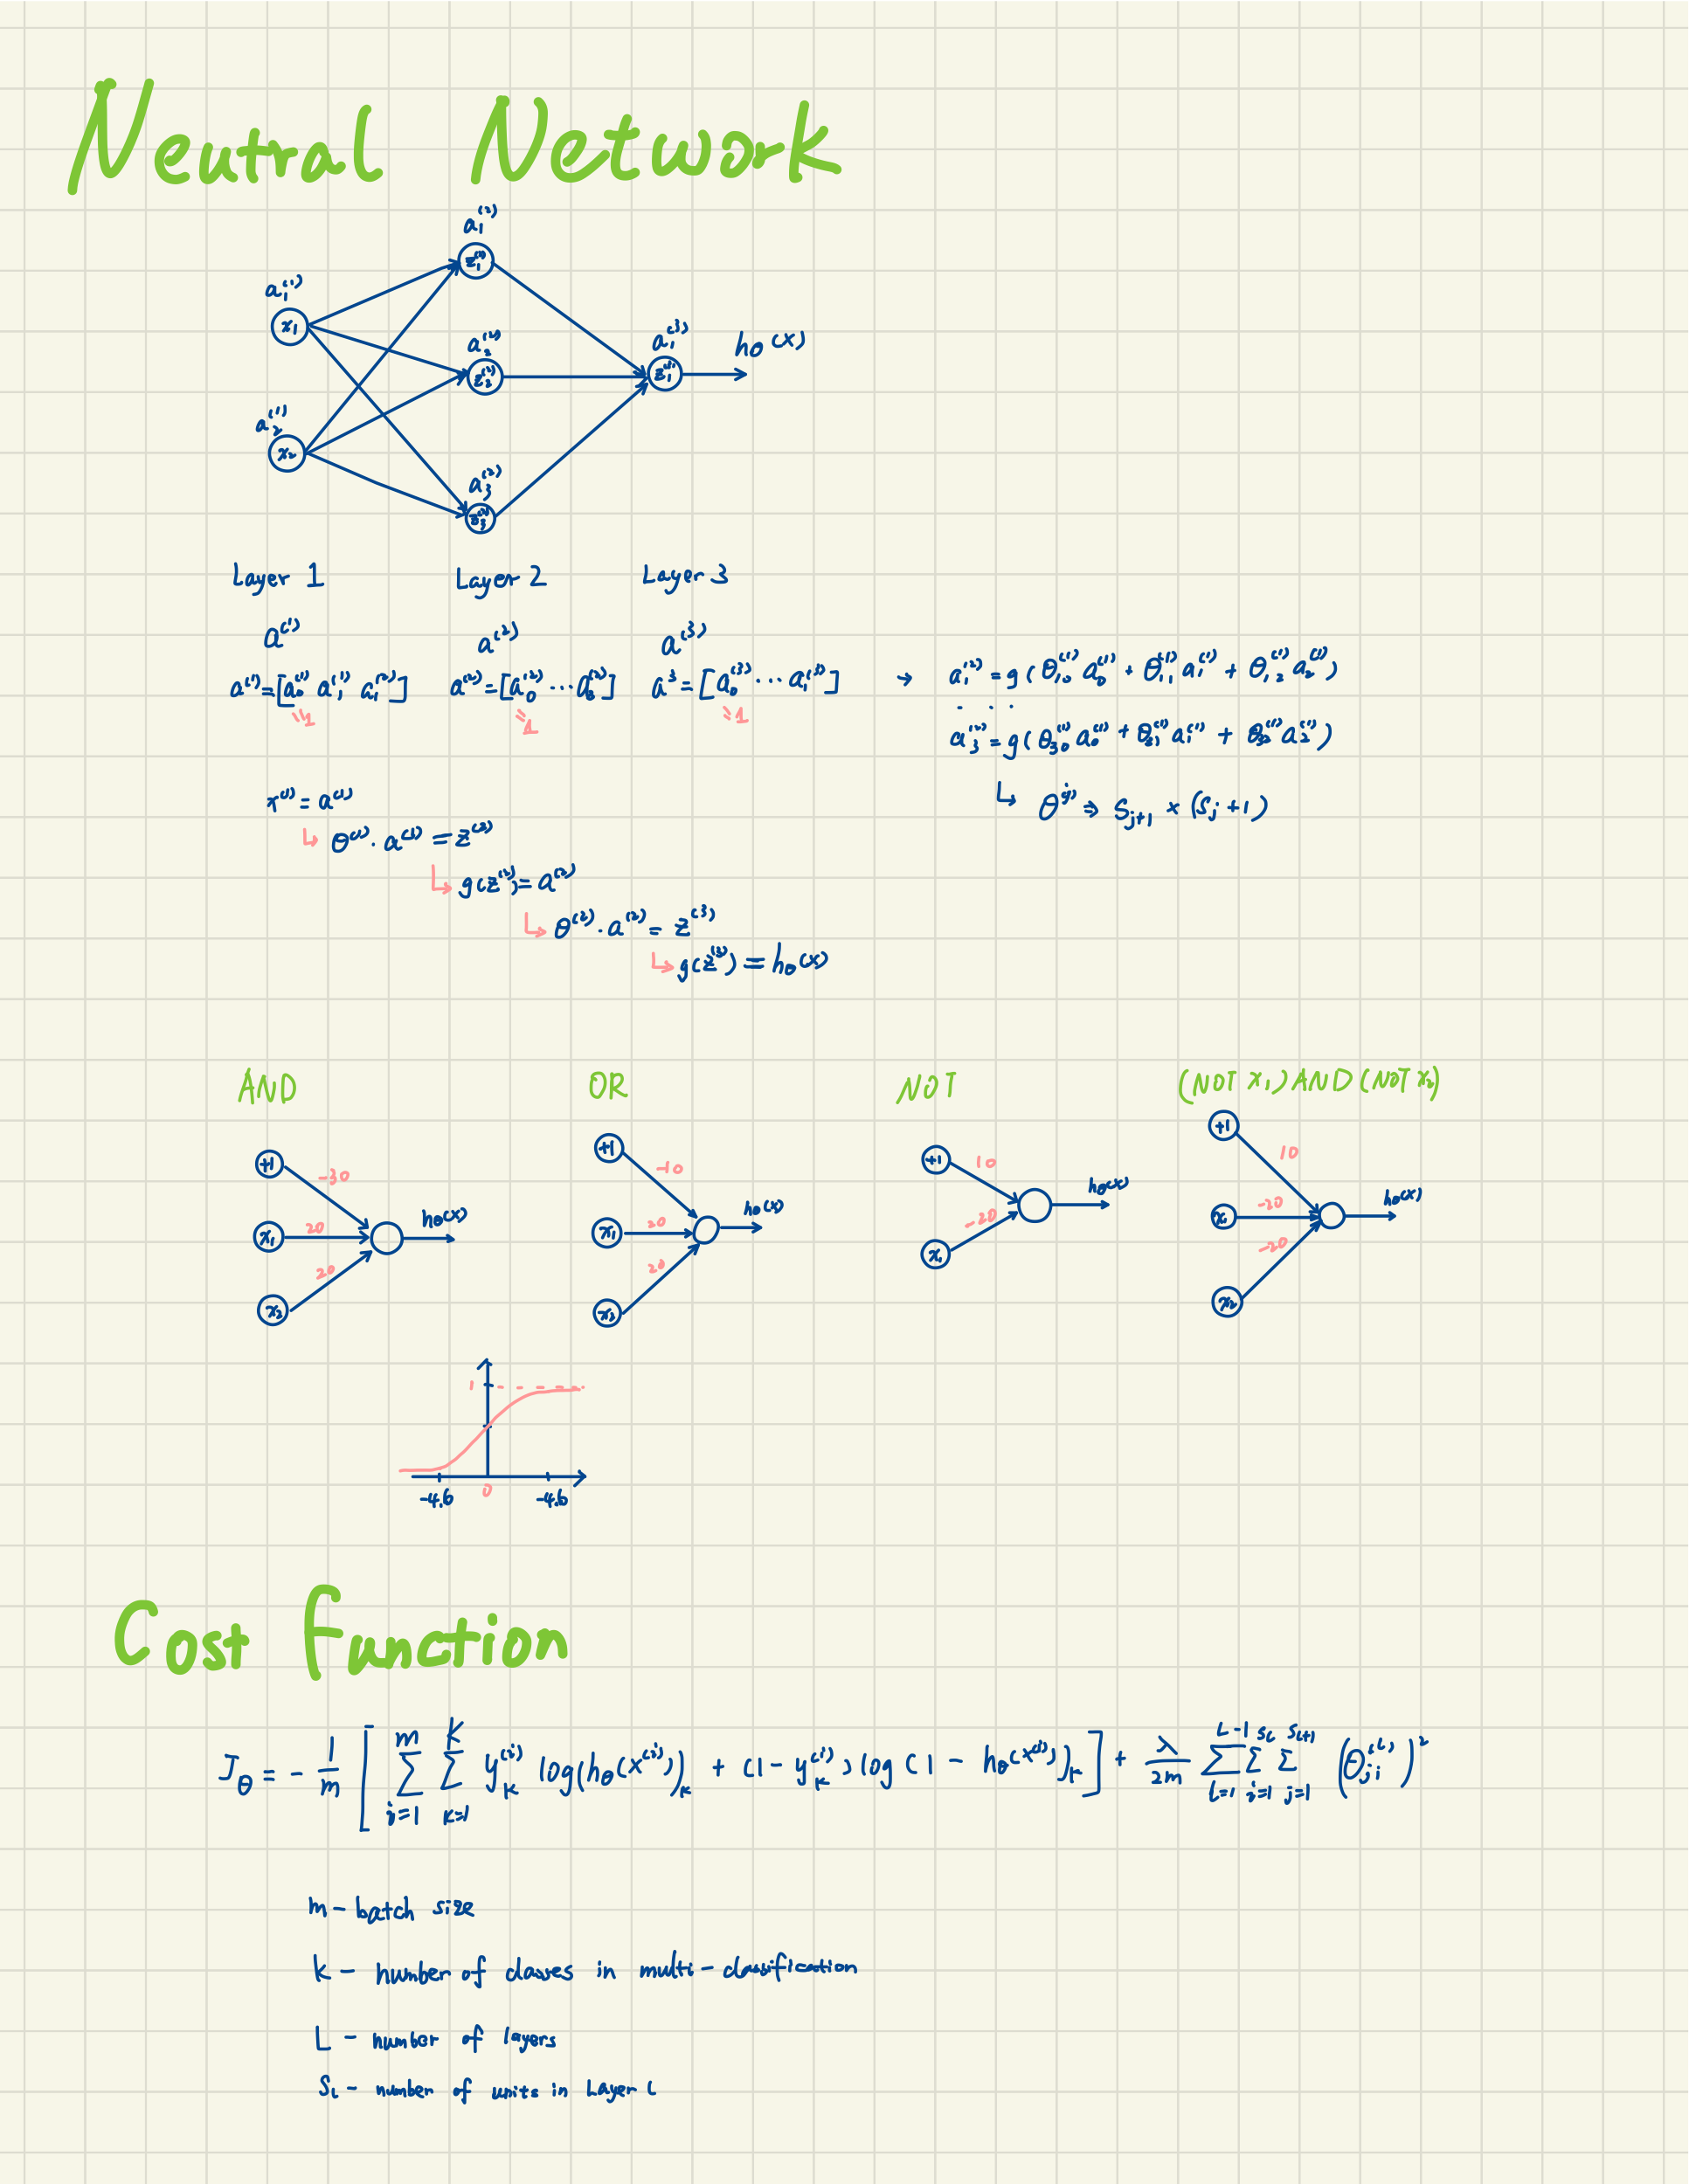 Neutral Network
a₁⁽²⁾
z₁⁽²⁾
a₁⁽¹⁾
x₁
a₂⁽²⁾
z₂⁽²⁾
a₁⁽³⁾
hθ(x)
a₂⁽¹⁾
x₂
a₃⁽²⁾
z₃⁽²⁾
Layer 1 Layer 2 Layer 3
a⁽¹⁾ a⁽²⁾ a⁽³⁾
a⁽¹⁾=[a₀⁽¹⁾ a₁⁽¹⁾ a₁⁽²⁾] a⁽²⁾=[a₀⁽²⁾ ... a₃⁽²⁾] a³=[a₀⁽³⁾ ... a₁⁽³⁾] → a₁⁽²⁾=g(θ₁,₀⁽¹⁾ a₀⁽¹⁾ + θ₁,₁⁽¹⁾ a₁⁽¹⁾ + θ₁,₂⁽¹⁾ a₂⁽¹⁾)
. . .
a₃⁽²⁾=g(θ₃₀⁽¹⁾ a₀⁽¹⁾ + θ₃₁⁽¹⁾ a₁⁽¹⁾ + θ₃₂⁽¹⁾ a₂⁽¹⁾)
↳ θ⁽ʲ⁾ ⇒ S_{j+1} × (S_j +1)
x⁽¹⁾ = a⁽¹⁾
↳ θ⁽¹⁾ · a⁽¹⁾ = z⁽²⁾
↳ g(z⁽²⁾)= a⁽²⁾
↳ θ⁽²⁾ · a⁽²⁾ = z⁽³⁾
↳ g(z⁽³⁾) = hθ(x)
AND OR NOT (NOT x₁) AND (NOT x₂)
+1 -30
x₁ 20 hθ(x)
x₂ 20
+1 -10
x₁ 20 hθ(x)
x₂ 20
+1 10
hθ(x)
x₁ -20
+1 10
x₁ -20 hθ(x)
x₂ -20
1
-4.6 0 -4.6
Cost Function
J_θ = - 1/m [ Σ_{i=1}^{m} Σ_{k=1}^{K} y_k⁽ⁱ⁾ log(hθ(x⁽ⁱ⁾)_k + (1 - y_k⁽ⁱ⁾) log (1 - hθ(x⁽ⁱ⁾)_k ] + λ/2m Σ_{l=1}^{L-1} Σ_{i=1}^{s_l} Σ_{j=1}^{s_{l+1}} (θ_{ji}⁽ˡ⁾)²
m - batch size
k - number of classes in multi-classification
L - number of layers
S_l - number of units in Layer l